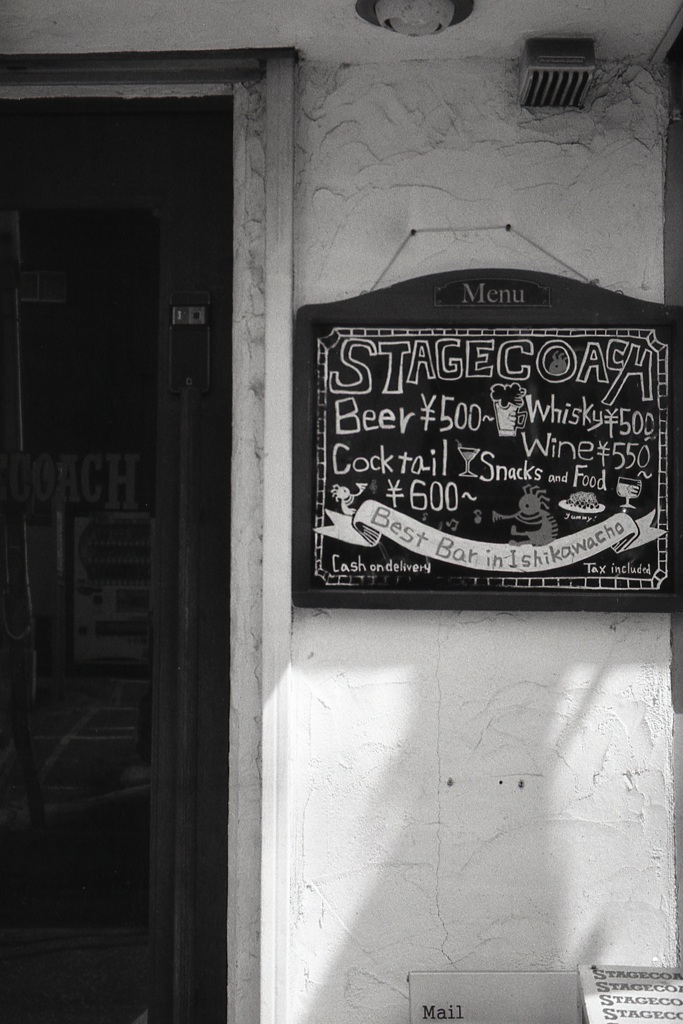 Menu
STAGECOACH
Beer ¥500~ Whisky ¥500
Wine ¥550~
Cocktail Snacks and Food
¥600~
Yummy!
Best Bar in Ishikawacho
Cash on delivery Tax included
ECOACH
Mail
STAGECOA
STAGECOA
STAGECO
STAGEC